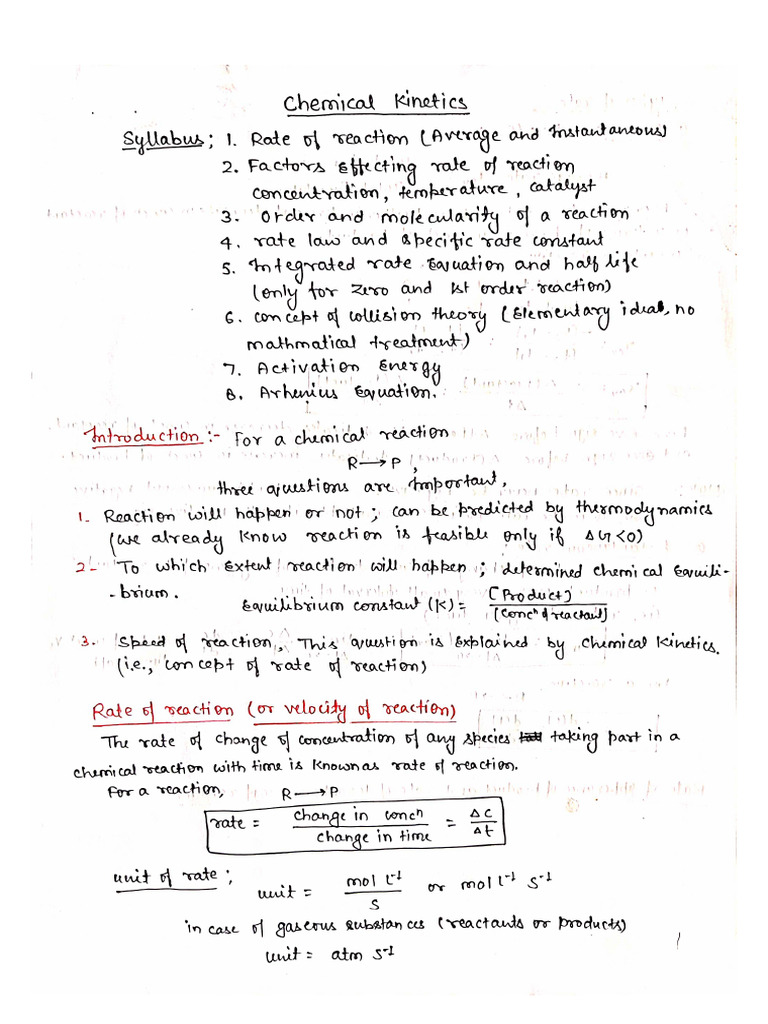 Chemical Kinetics
Syllabus; 1. Rate of reaction (Average and Instantaneous)
2. Factors Effecting rate of reaction
concentration, temperature, catalyst
3. Order and molecularity of a reaction
4. rate law and specific rate constant
5. Integrated rate Equation and half life
(only for zero and 1st order reaction)
6. concept of collision theory (Elementary ideas, no
mathmatical treatment)
7. Activation Energy
8. Arhenius Equation.
Introduction :- For a chemical reaction
R → P,
three questions are Important,
1. Reaction will happen or not; can be predicted by thermodynamics
(we already know reaction is feasible only if ΔG<0)
2- To which Extent reaction will happen; determined chemical Equili-
-brium.
Equilibrium constant (K) = [Product] / [Concⁿ of reactant]
3. Speed of reaction, This question is Explained by Chemical Kinetics.
(i.e., concept of rate of reaction)
Rate of reaction (or velocity of reaction)
The rate of change of concentration of any species taking part in a
chemical reaction with time is known as rate of reaction.
For a reaction, R → P
rate = change in concn / change in time = ΔC / Δt
unit of rate; unit = mol L⁻¹ / s or mol L⁻¹ s⁻¹
in case of gaseous substances (reactants or products)
unit = atm s⁻¹
1